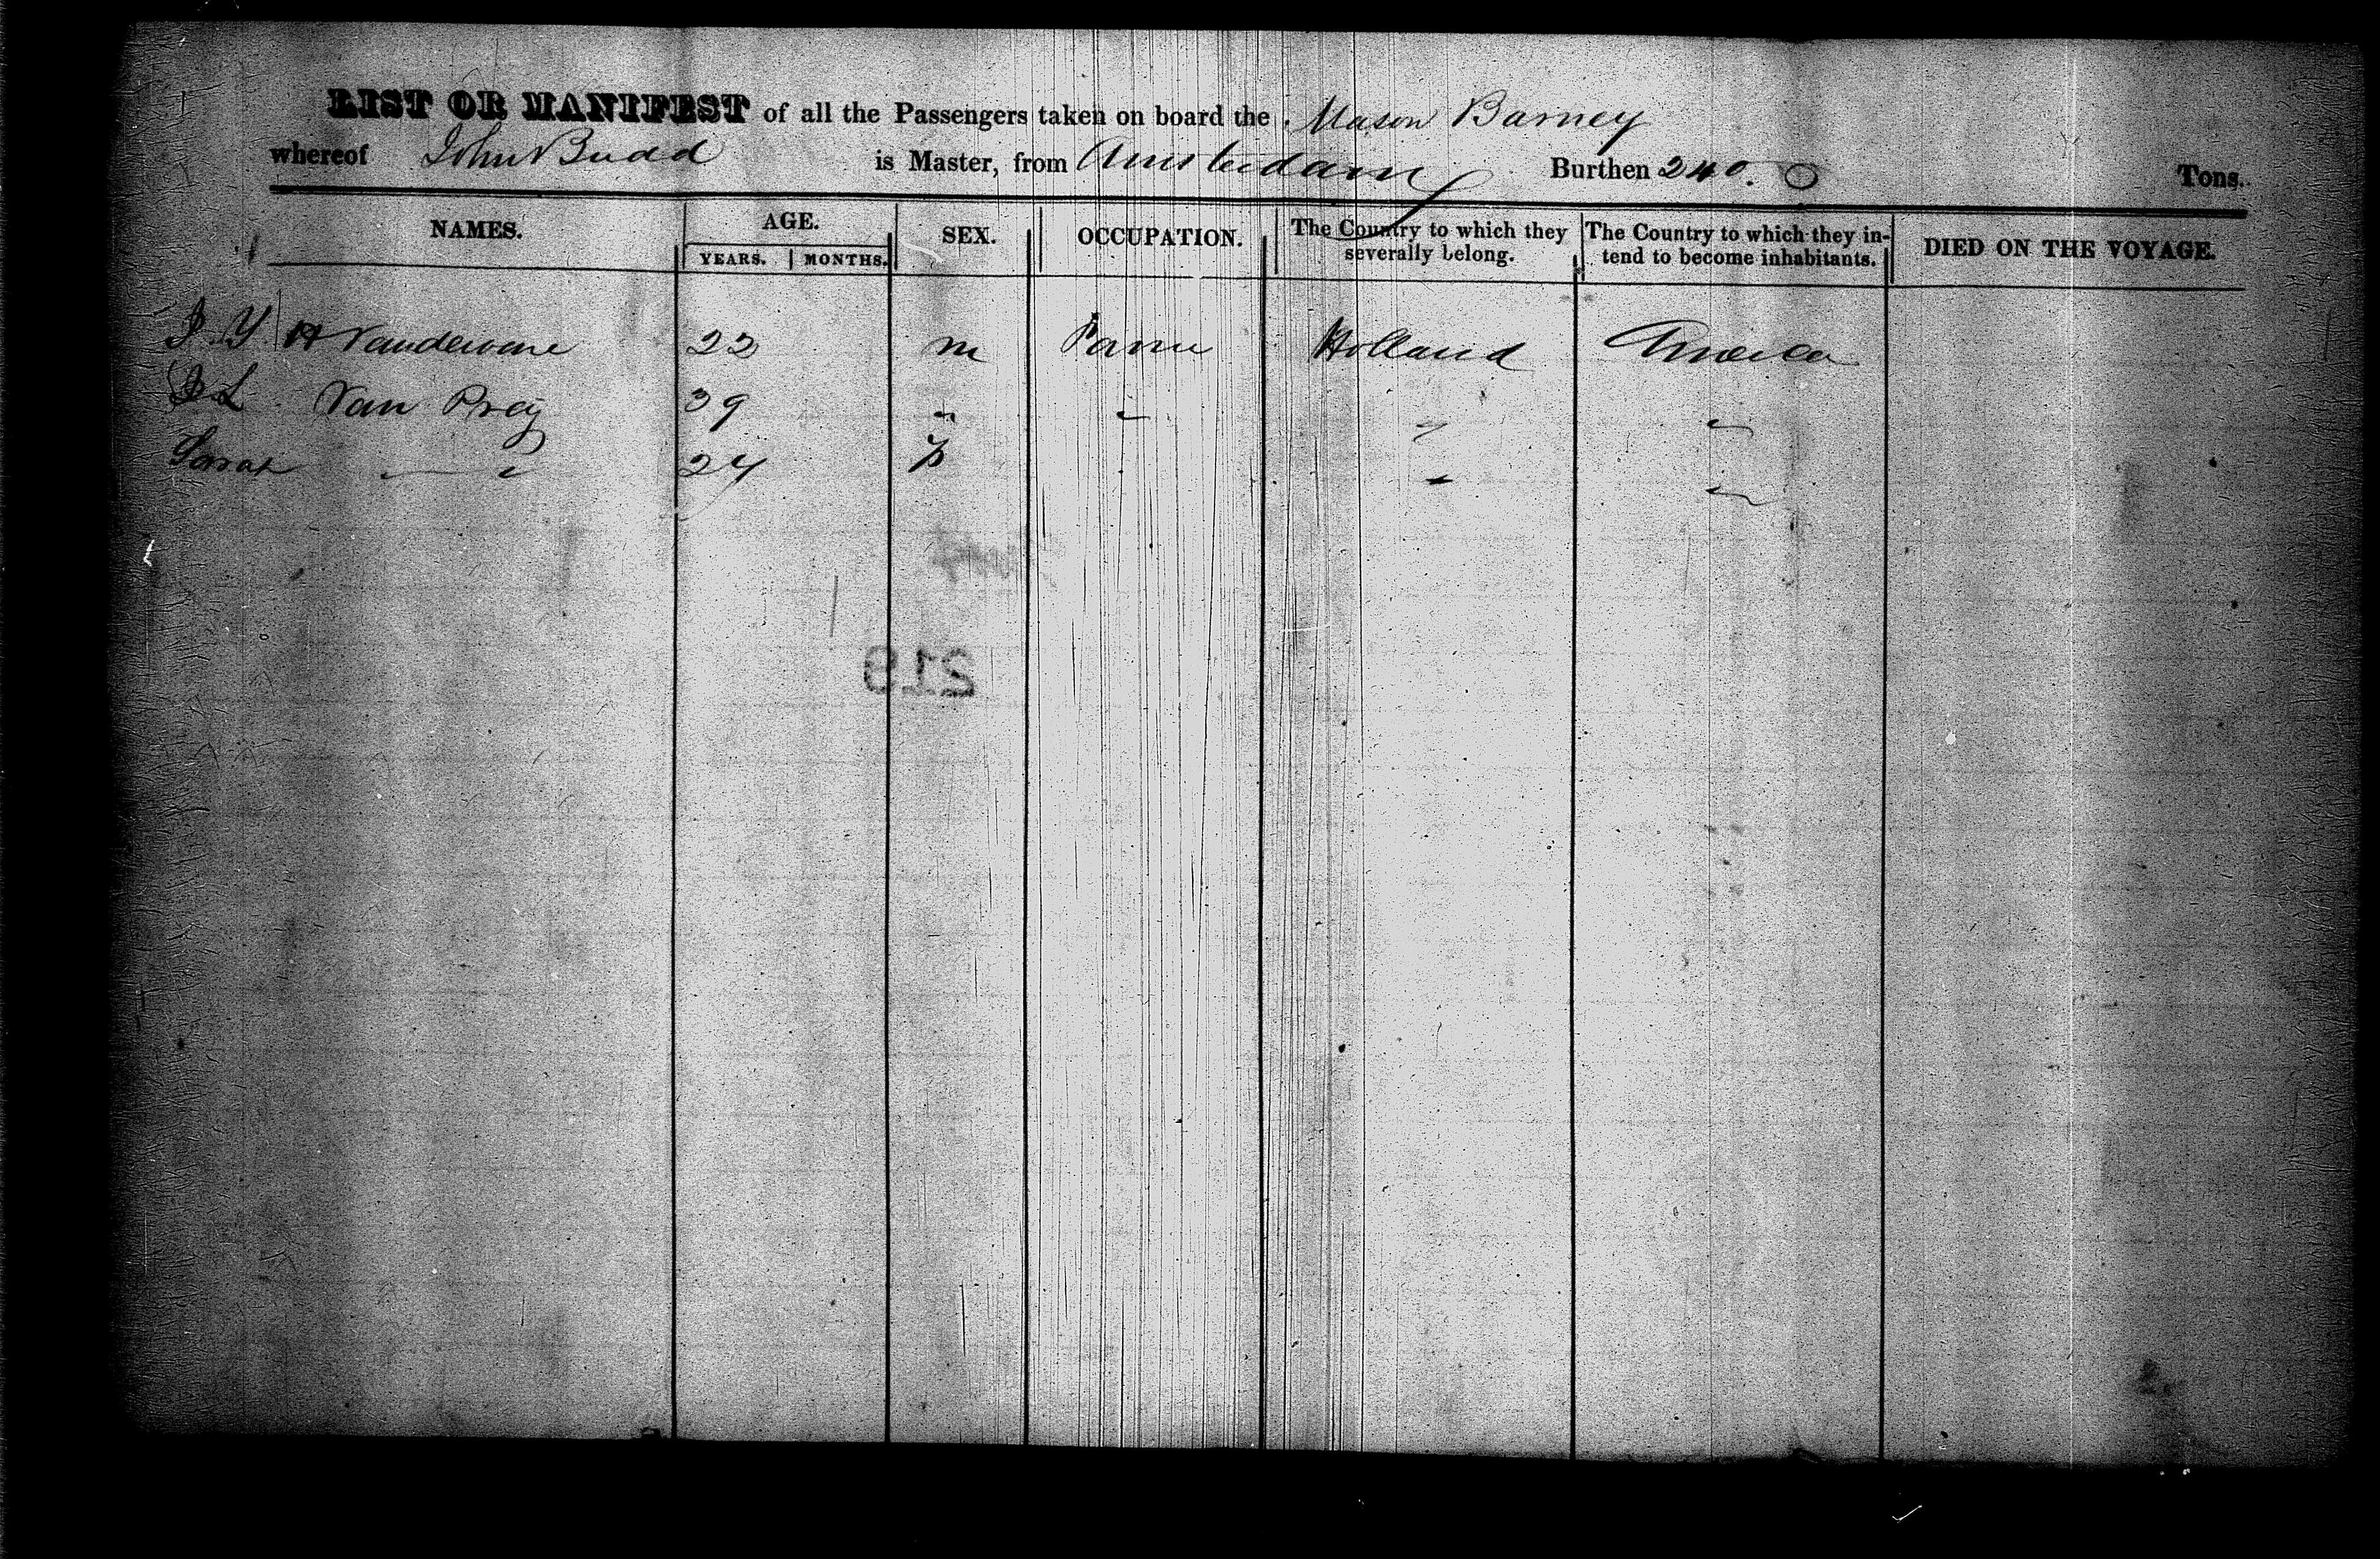 LIST OR MANIFEST of all the Passengers taken on board the Mason Barney
whereof John Budd is Master, from Amsterdam Burthen 240. Tons.
NAMES. AGE. SEX. OCCUPATION. The Country to which they severally belong. The Country to which they intend to become inhabitants. DIED ON THE VOYAGE.
YEARS. MONTHS.
22 m Holland America
L Van Prag 39 " " " "
Sarah " 24 f " "
219